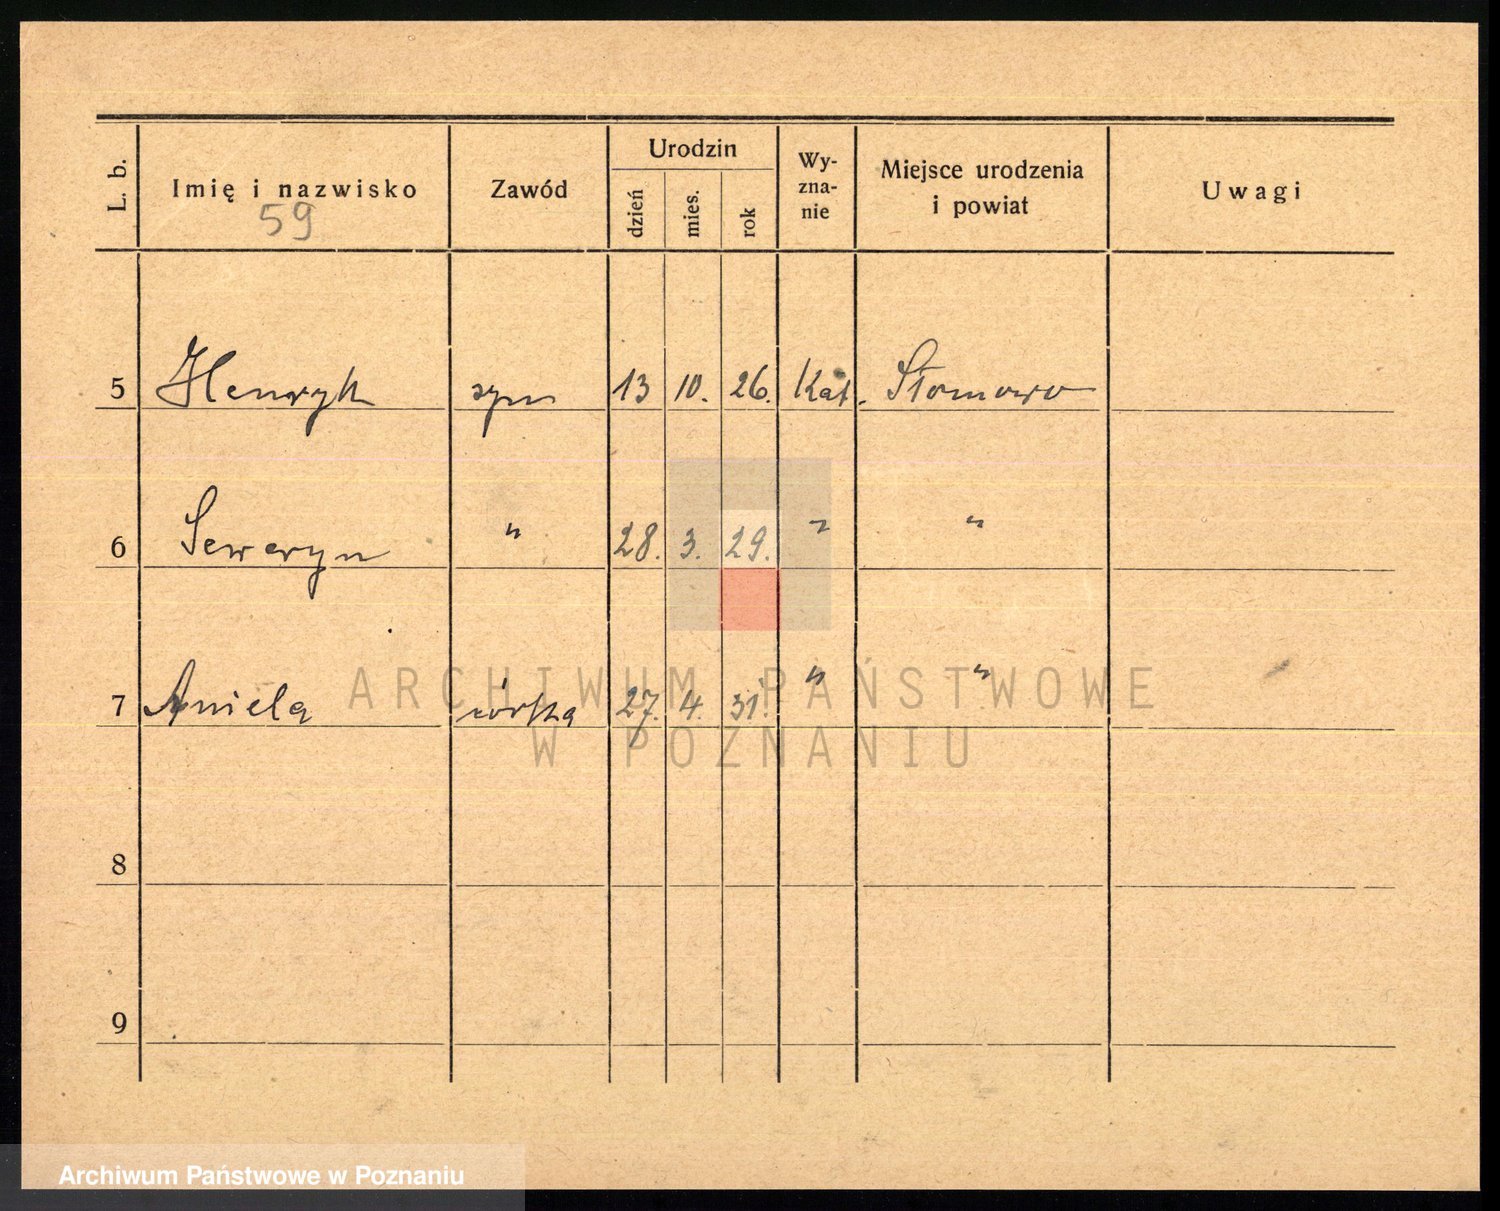 L. b. Imię i nazwisko Zawód Urodzin Wy-zna-nie Miejsce urodzenia i powiat Uwagi
dzień mies. rok
59
5 Henryk syn 13 10. 26. Kat. Słomowo
6 Seweryn " 28. 3. 29. " "
7 Aniela córka 27. 4. 31. " "
8
9
ARCHIWUM PAŃSTWOWE
W POZNANIU
Archiwum Państwowe w Poznaniu